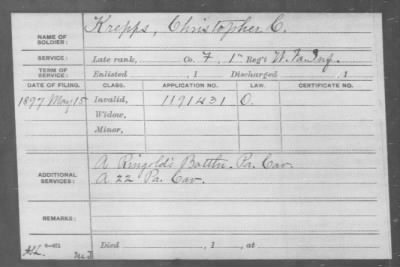 NAME OF SOLDIER: Krepps, Christopher C.
SERVICE: Late rank, Co. F, 1" Reg't W. Va. Inf.
TERM OF SERVICE: Enlisted , 1 Discharged , 1
DATE OF FILING. CLASS. APPLICATION NO. LAW. CERTIFICATE NO.
1897 May 15 Invalid, 1191431 O.
Widow,
Minor,
ADDITIONAL SERVICES: A Ringold's Battn. Pa. Cav.
A 22 Pa. Cav.
REMARKS:
Died , 1 , at